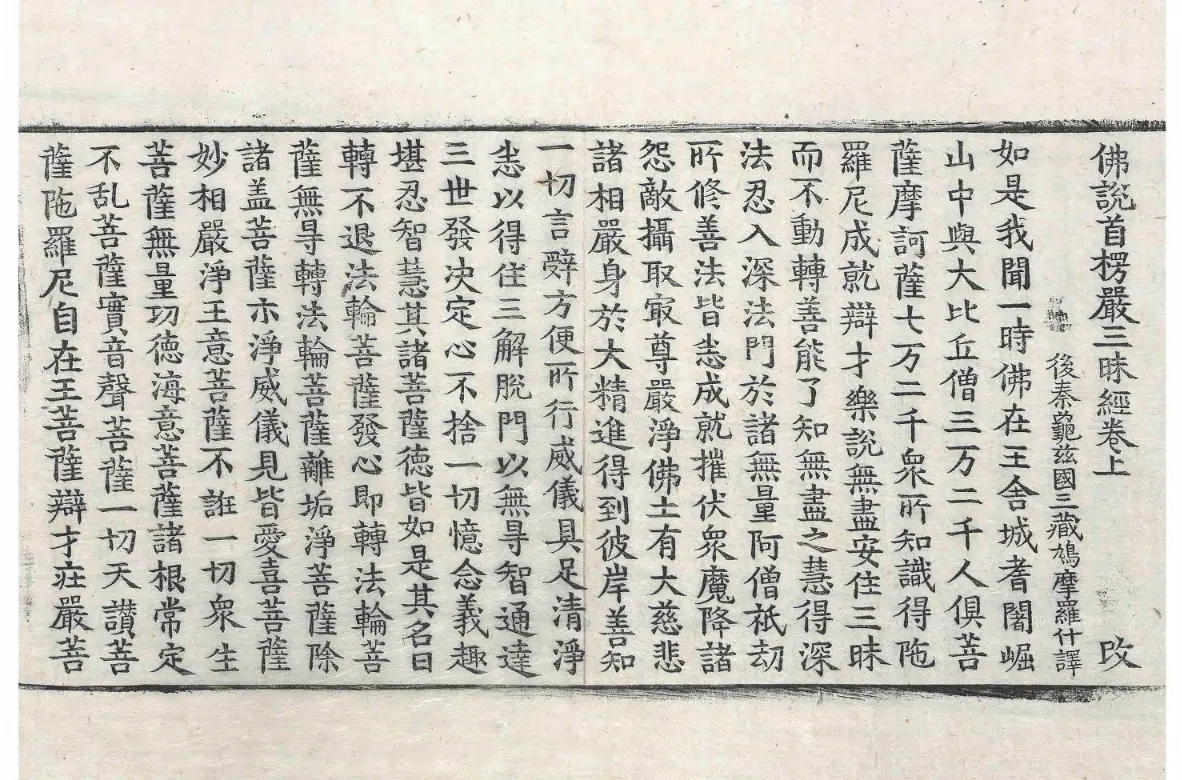 佛說首楞嚴三昧經卷上 改
後秦龜茲國三藏鳩摩羅什譯
如是我聞一時佛在王舍城耆闍崛
山中與大比丘僧三万二千人俱菩
薩摩訶薩七万二千衆所知識得陁
羅尼成就辯才樂說無盡安住三昧
而不動轉善能了知無盡之慧得深
法忍入深法門於諸無量阿僧祇劫
所修善法皆悉成就摧伏衆魔降諸
怨敵攝取㝡尊嚴淨佛土有大慈悲
諸相嚴身於大精進得到彼岸善知
一切言辭方便所行威儀具足清淨
悉以得住三解脫門以無㝵智通達
三世發決定心不捨一切憶念義趣
堪忍智慧其諸菩薩德皆如是其名曰
轉不退法輪菩薩發心即轉法輪菩
薩無㝵轉法輪菩薩離垢淨菩薩除
諸盖菩薩示淨威儀見皆愛喜菩薩
妙相嚴淨王意菩薩不誑一切衆生
菩薩無量功德海意菩薩諸根常定
不乱菩薩實音聲菩薩一切天讃菩
薩陁羅尼自在王菩薩辯才莊嚴菩